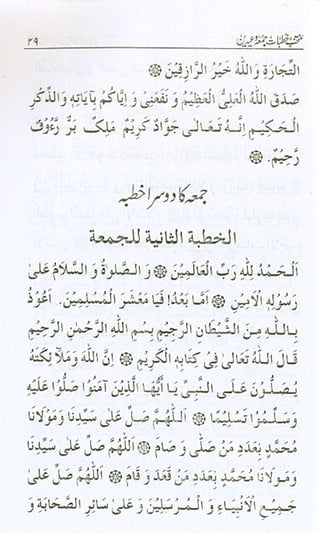 منتخب خطبات جمعہ و عیدین ۲۹
التِّجَارَةِ وَاللّٰهُ خَيْرُ الرَّازِقِيْنَ
صَدَقَ اللّٰهُ الْعَلِيُّ الْعَظِيْمُ وَ نَفَعَنِيْ وَ اِيَّاكُمْ بِآيَاتِهٖ وَالذِّكْرِ
الْحَكِيْمِ اِنَّهٗ تَعَالٰى جَوَّادٌ كَرِيْمٌ مَلِكٌ بَرٌّ رَءُوْفٌ
رَّحِيْمٌ.
جمعہ کا دوسرا خطبہ
الخطبة الثانية للجمعة
اَلْحَمْدُ لِلّٰهِ رَبِّ الْعَالَمِيْنَ وَ الصَّلٰوةُ وَ السَّلَامُ عَلٰى
رَسُوْلِهِ الْاَمِيْنِ اَمَّا بَعْدُ! فَيَا مَعْشَرَ الْمُسْلِمِيْنَ. اَعُوْذُ
بِاللّٰهِ مِنَ الشَّيْطَانِ الرَّجِيْمِ بِسْمِ اللّٰهِ الرَّحْمٰنِ الرَّحِيْمِ
قَالَ اللّٰهُ تَعَالٰى فِيْ كِتَابِهِ الْكَرِيْمِ اِنَّ اللّٰهَ وَمَلَآئِكَتَهٗ
يُصَلُّوْنَ عَلَى النَّبِيِّ يَا اَيُّهَا الَّذِيْنَ آمَنُوْا صَلُّوْا عَلَيْهِ
وَسَلِّمُوْا تَسْلِيْمًا اَللّٰهُمَّ صَلِّ عَلٰى سَيِّدِنَا وَمَوْلَانَا
مُحَمَّدٍ بِعَدَدِ مَنْ صَلّٰى وَ صَامَ اَللّٰهُمَّ صَلِّ عَلٰى سَيِّدِنَا
وَمَوْلَانَا مُحَمَّدٍ بِعَدَدِ مَنْ قَعَدَ وَ قَامَ اَللّٰهُمَّ صَلِّ عَلٰى
جَمِيْعِ الْاَنْبِيَاءِ وَ الْمُرْسَلِيْنَ وَ عَلٰى سَائِرِ الصَّحَابَةِ وَ